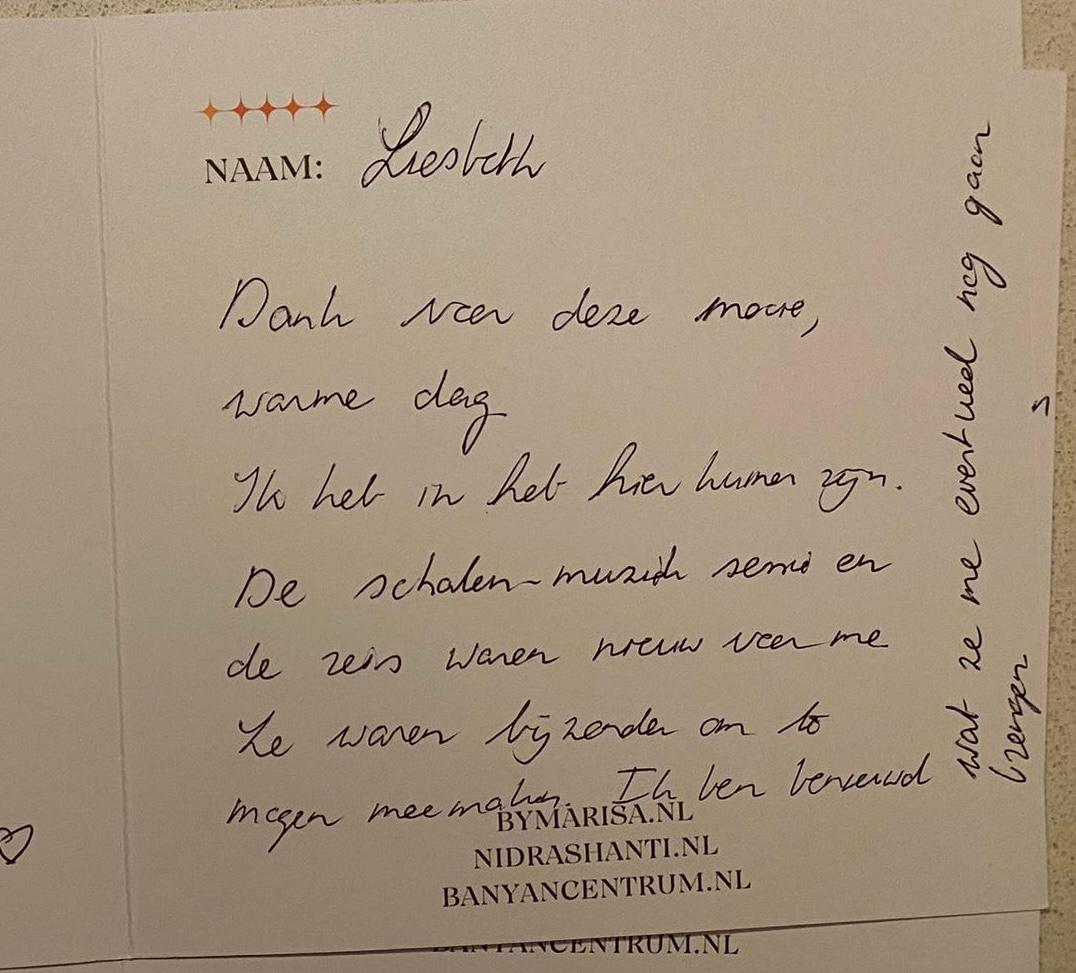 NAAM: Liesbeth
Dank voor deze mooie,
warme dag
Ik heb in het hier kunnen zijn.
De schalen-muziek sessie en
de reis waren nieuw voor me
Ze waren bijzonder om te
mogen meemaken. Ik ben benieuwd
wat ze me eventueel nog gaan
brengen
BYMARISA.NL
NIDRASHANTI.NL
BANYANCENTRUM.NL
BANYANCENTRUM.NL